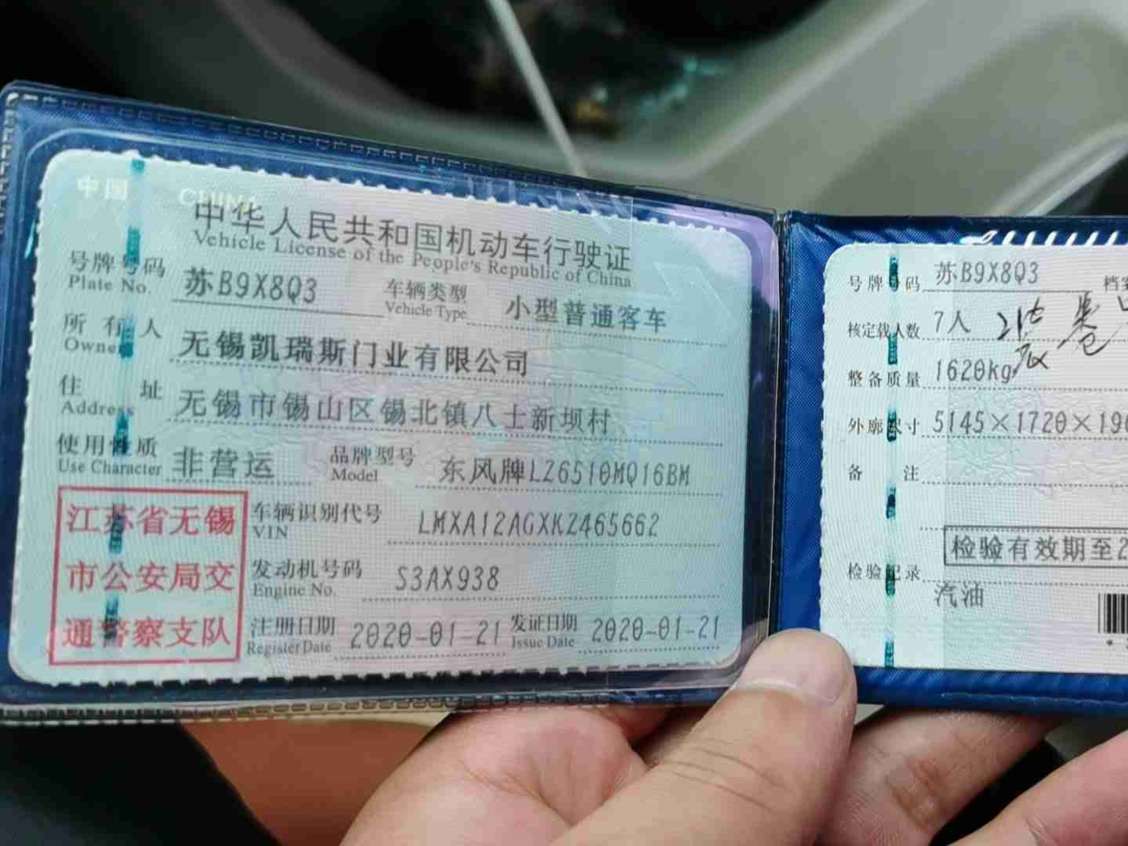 中国 CHINA
中华人民共和国机动车行驶证
Vehicle License of the People's Republic of China
号牌号码 苏B9X8Q3 车辆类型 小型普通客车
Plate No. Vehicle Type
所有人 无锡凯瑞斯门业有限公司
Owner
住址 无锡市锡山区锡北镇八士新坝村
Address
使用性质 非营运 品牌型号 东风牌LZ6510MQ16BM
Use Character Model
江苏省无锡
市公安局交
通警察支队
车辆识别代号 LMXA12AGXKZ465662
VIN
发动机号码 S3AX938
Engine No.
注册日期 2020-01-21 发证日期 2020-01-21
Register Date Issue Date
号牌号码 苏B9X8Q3 档案
核定载人数 7人
整备质量 1620kg
外廓尺寸 5145×1720×19
备注
检验有效期至2
检验记录
汽油